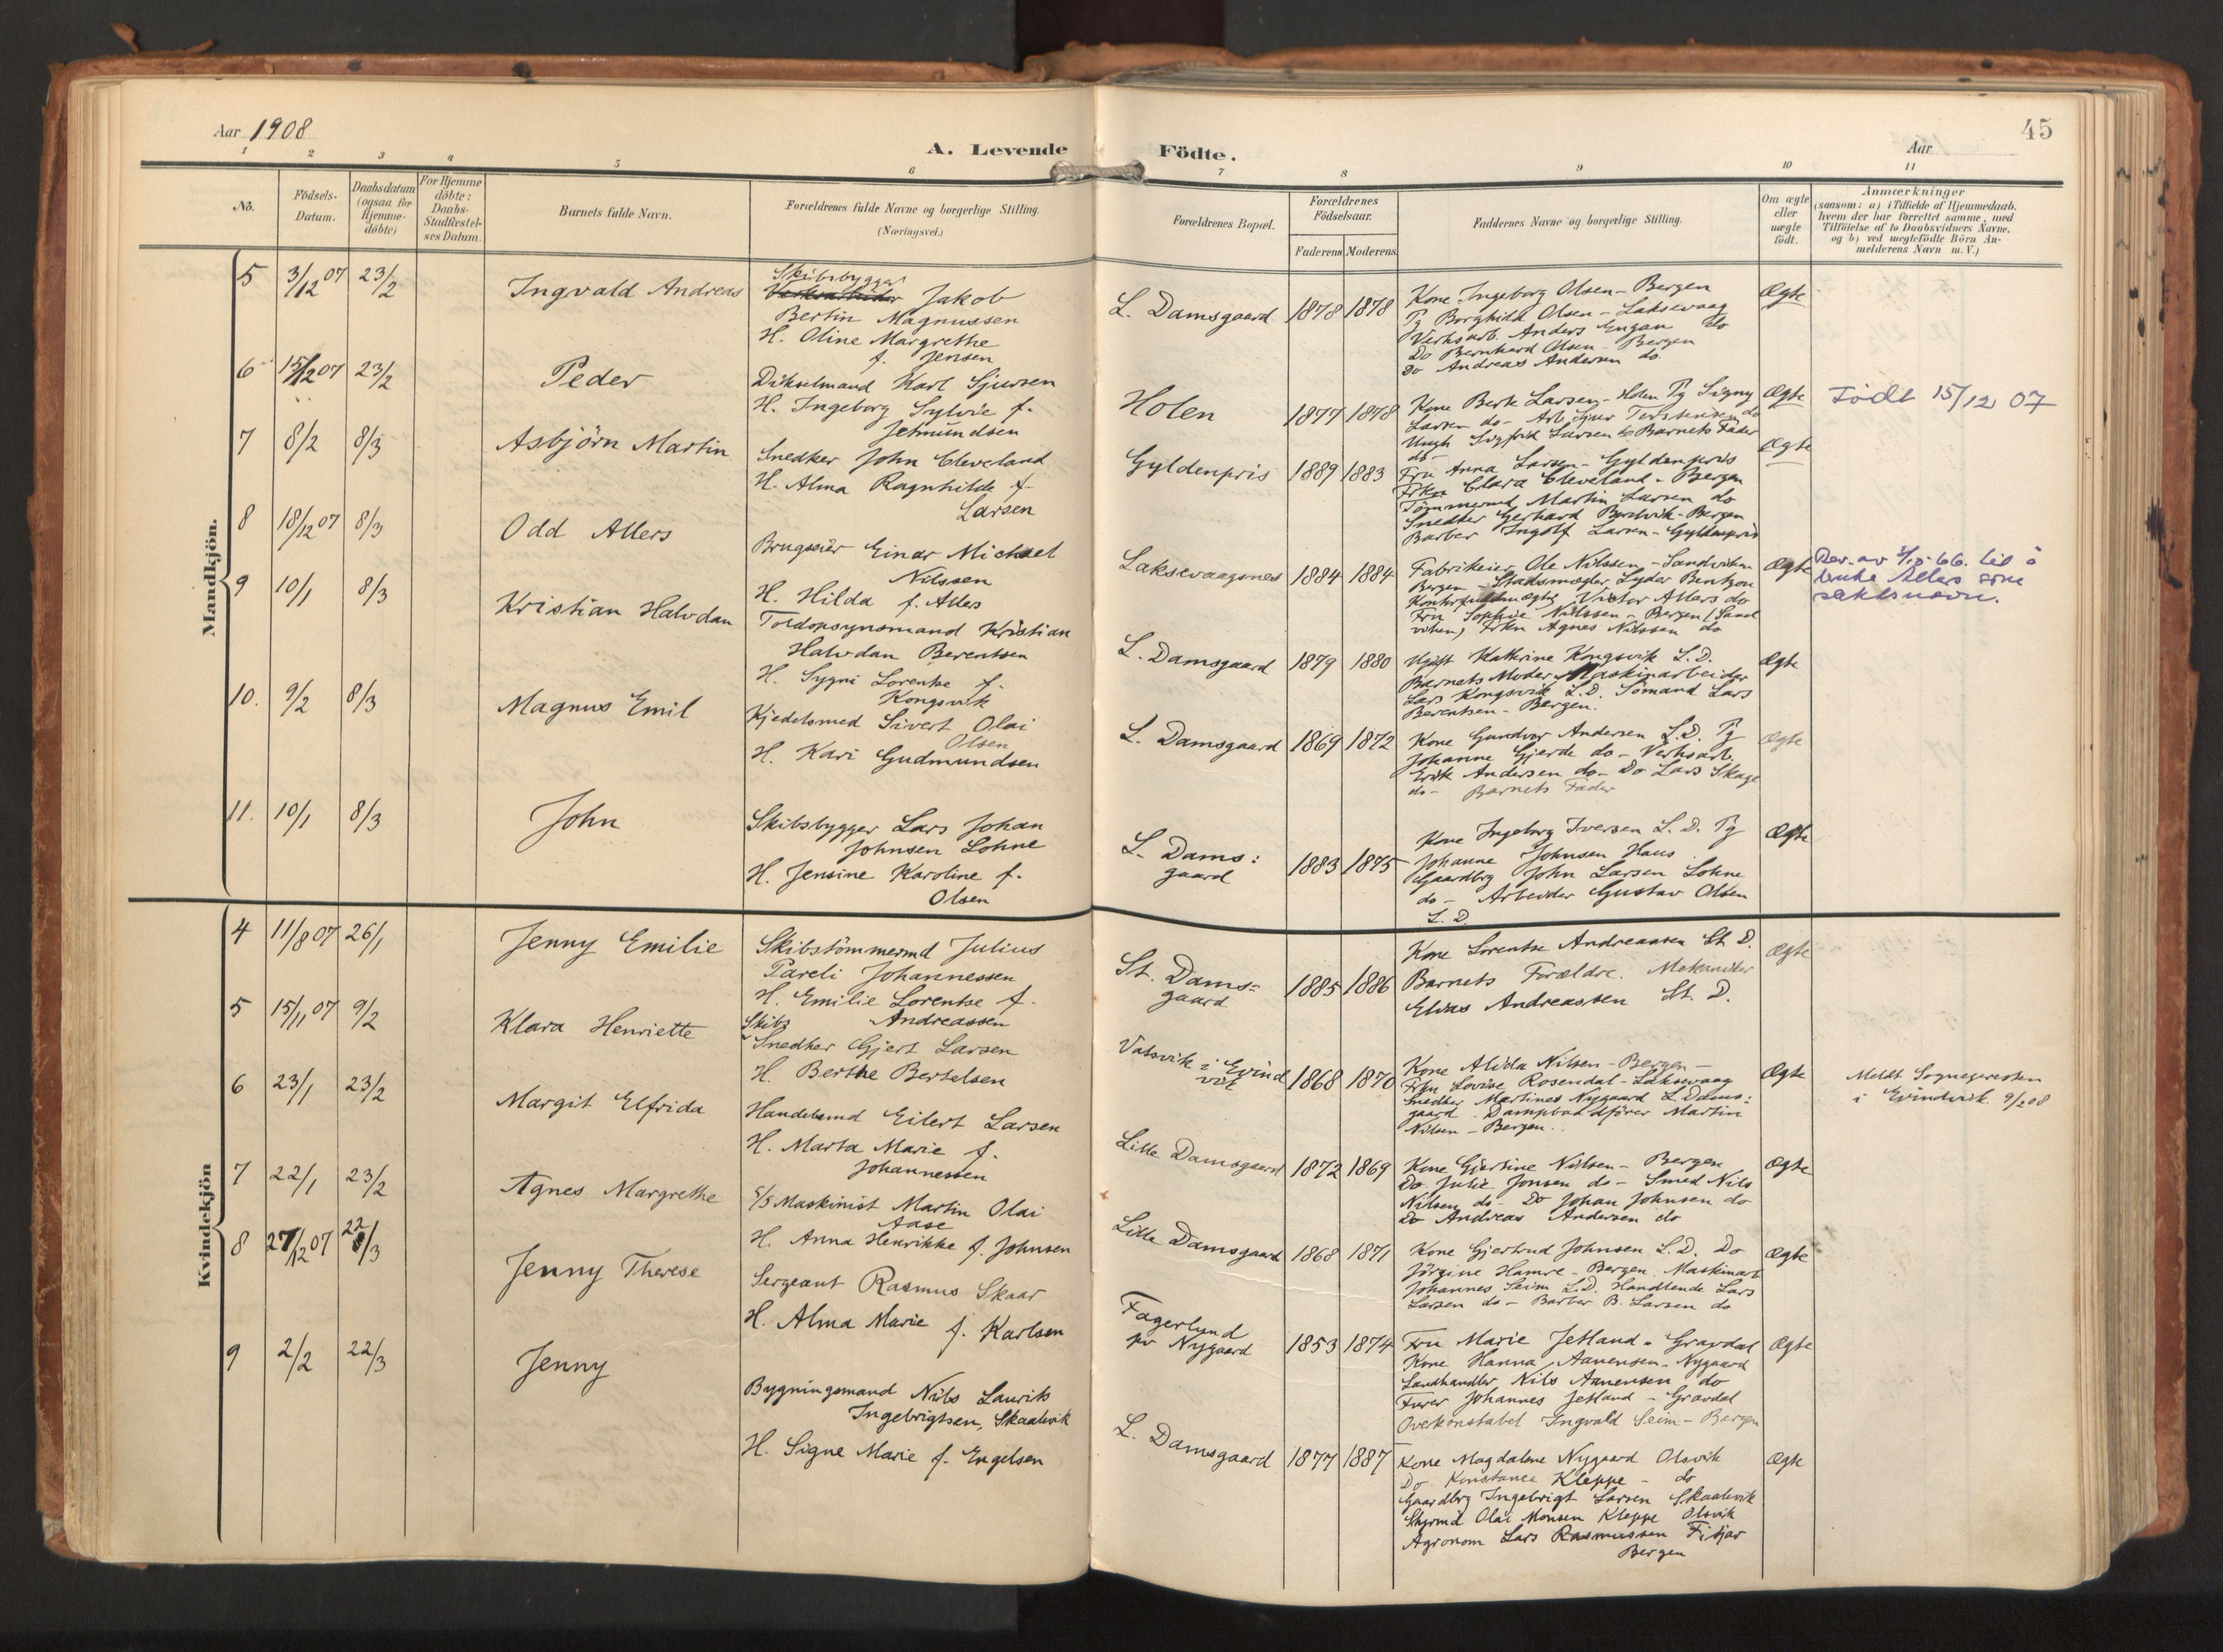 Aar 1908
A. Levende Födte.
Aar
45
1 2 3 4 5 6 7 8 9 10 11
No.
Födsels-Datum.
Daabsdatum (ogsaa for Hjemme-döbte)
For Hjemme döbte: Daabs-Stadfæstel-ses Datum.
Barnets fulde Navn.
Forældrenes fulde Navne og borgerlige Stilling. (Næringsvei.)
Forældrenes Bopæl.
Forældrenes Födselsaar.
Faderens Moderens
Faddernes Navne og borgerlige Stilling.
Om ægte eller uægte födt.
Anmærkninger (saasom: a) i Tilfælde af Hjemmedaab, hvem der har forrettet samme, med Tilföielse af to Daabsvidners Navne, og b) ved uægtefödte Börn An-melderens Navn m. V.)
Mandkjön.
5 3/12 07 23/2 Ingvald Andreas
Skibsbygger
Jakob
Bertin Magnussen
H. Oline Margrethe
f. Jensen
L. Damsgaard 1878 1878
Kone Ingeborg Olsen - Bergen
Pg Borghild Olsen - Laksevaag
Verksarb. Anders Engan do
Do Bernhard Olsen - Bergen
Do Andreas Andersen do
Ægte
6 15/12 07 23/2 Peder
Dikselmand Karl Sjursen
H. Ingeborg Sylvie f.
Jetmundsen
Holen 1877 1878
Kone Berte Larsen - Holen Pg Signy
Larsen do - Arb. Sjur Terstensen do
Ungk Sigfrid Larsen do Barnets Fader
do -
Ægte
Födt 15/12 07
7 8/2 8/3 Asbjörn Martin
Snedker John Cleveland
H. Alma Ragnhilde f.
Larsen
Gyldenpris 1889 1883
Fru Anna Larsen - Gyldenpris
Frkn Clara Cleveland - Bergen
Tömmermd Martin Larsen do
Snedker Gerhard - Bergen
Barber Ingolf Larsen - Gyldenpris
Ægte
8 18/12 07 8/3 Odd Allers
Brugseier Einar Michael
Nilssen
H. Hilda f. Allers
Laksevaagsnes 1884 1884
Fabrikeier Ole Nilssen - Sandviken
Bergen - Stadsmægler Lyder Bentzon
Victor Allers do
Fru Sophie Nilssen - Bergen (Sand
viken) Frkn Agnes Nilssen do
Ægte
66. til å
bruke Allers som
slektsnavn.
9 10/1 8/3 Kristian Halvdan
Toldopsynsmand Kristian
Halvdan Berentsen
H. Sygni Lorentse f.
Kongsvik
L. Damsgaard 1879 1880
Ugift Kathrine Kongsvik L. D.
Barnets Moder, Maskinarbeider
Lars Kongsvik L. D. Sömand Lars
Berentsen - Bergen.
Ægte
10. 9/2 8/3 Magnus Emil
Kjedelsmed Sivert Olai
Olsen
H. Kari Gudmundsen
L. Damsgaard 1869 1872
Kone Gundvor Andersen L. D. Pg
Johanne Gjerde do - Verksarb.
Erik Andersen do - Do Lars Skage
do - Barnets Fader
Ægte
11. 10/1 8/3 John
Skibsbygger Lars Johan
Johnsen Lohne
H. Jensine Karoline f.
Olsen
L. Dams:
gaard 1883 1875
Kone Ingeborg Iversen L. D. Pg
Johanne Johnsen Haus
Gaardbrg John Larsen Lohne
do - Arbeider Gustav Olsen
L. D.
Ægte
Kvindekjön
4 11/8 07 26/1 Jenny Emilie
Skibstömmermd Julius
Pareli Johannessen
H. Emilie Lorentse f.
Andreassen
St. Dams=
gaard 1885 1886
Kone Lorentse Andreassen St. D.
Barnets Forældre.
Elias Andreassen St. D.
Ægte
5 15/11 07 9/2 Klara Henriette
Skibs
Snedker Gjert Larsen
H. Berthe Bertelsen
Vatsvik i Evind
vik 1868 1870
Kone Alida Nilsen - Bergen -
Frkn Lovise Rosendal - Laksevaag
Snedker Martines Nygaard L. Dams:
gaard. Dampbaadförer Martin
Nilsen - Bergen.
Ægte
Meldt Sognepresten
i Evindvik 9/2 08
6 23/1 23/2 Margit Elfrida
Handelsmd Eilert Larsen
H. Marta Marie f.
Johannessen
Lille Damsgaard 1872 1869
Kone Gjertine Nilsen - Bergen
Do Julie Jonsen do - Smed Nils
Nilsen do Do Johan Johnsen do
Do Andreas Andersen do
Ægte
7 22/1 23/2 Agnes Margrethe
S/S Maskinist Martin Olai
Aase
H. Anna Henrikke f. Johnsen
Lille Damsgaard 1868 1871
Kone Gjertrud Johnsen L. D. Do
Jörgine Hamre - Bergen Maskinarb
Johannes Seim L. D. Handlende Lars
Larsen do - Barber B. Larsen do
Ægte
8 27/12 07 22/3 Jenny Therese
Sergeant Rasmus Skaar
H. Alma Marie f. Karlsen
Fagerlund
pr Nygaard 1853 1874
Fru Marie Jetland - Gravdal
Kone Hanna Aanensen - Nygaard
Landhandler Nils Aanensen do
Furer Johannes Jetland - Gravdal
Overkonstabel Ingvald Seim - Bergen
Ægte
9 2/2 22/3 Jenny
Bygningsmand Nils Laurits
Ingebrigtsen, Skaalevik
H. Signe Marie f. Engelsen
L. Damsgaard 1877 1887
Kone Magdalene Nygaard Olsvik
Do Konstance Kleppe - do
Gaardbrg Ingebrigt Larsen Skaalevik
Styrmd Olai Monsen Kleppe Olsvik
Agronom Lars Rasmussen Fitjar
Bergen
Ægte